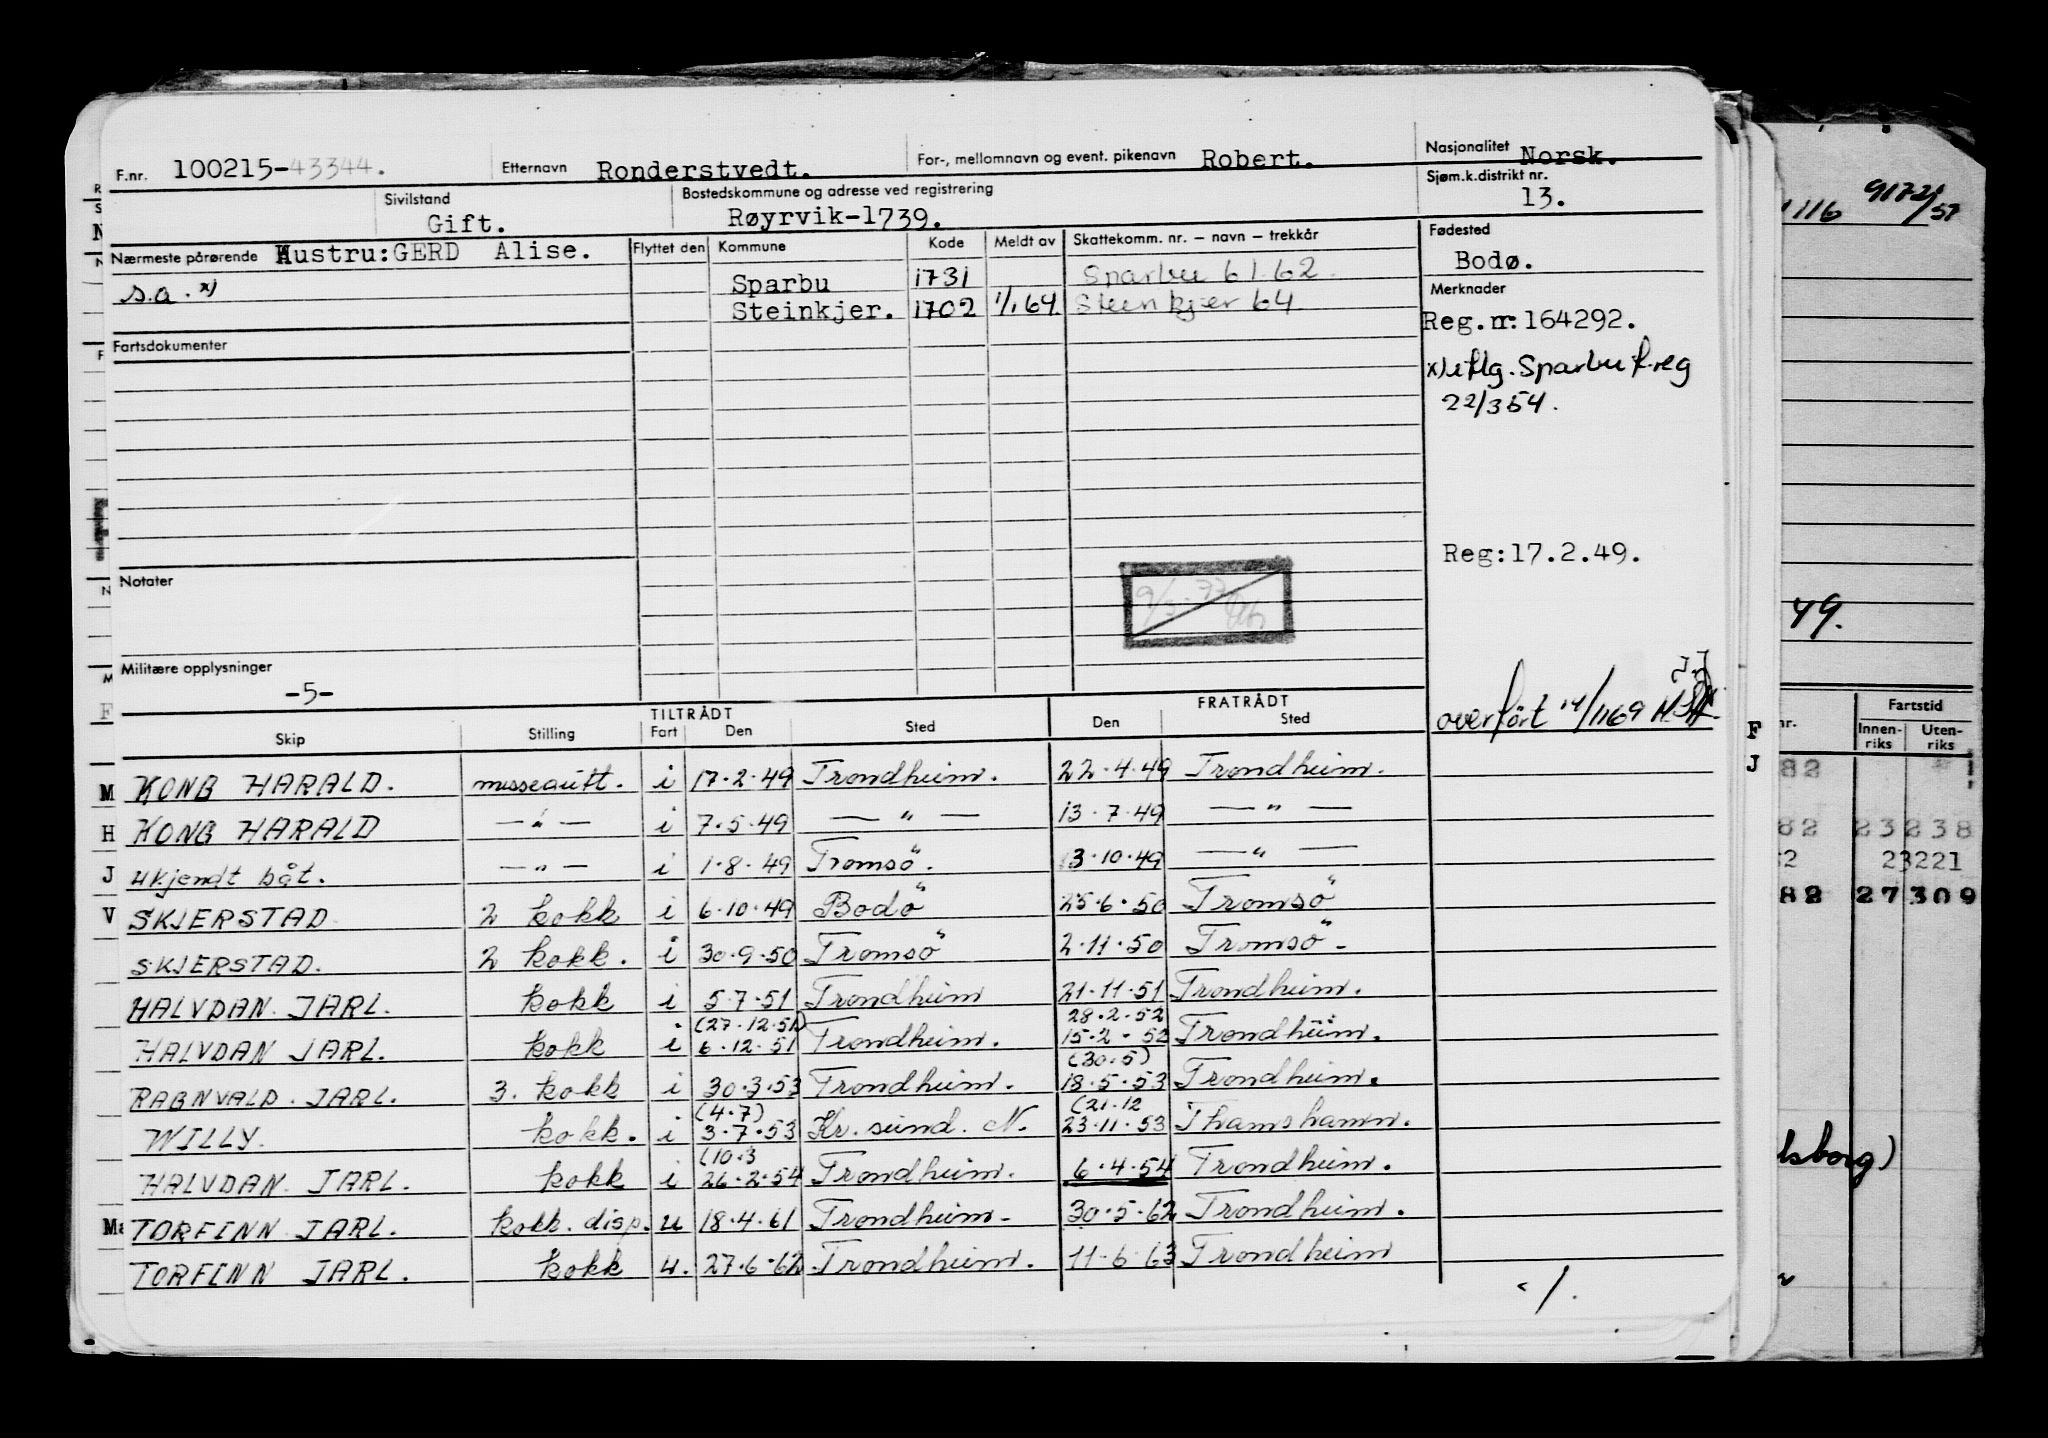 F.nr. 100215-43344. Etternavn Ronderstvedt. For-, mellomnavn og event. pikenavn Robert. Nasjonalitet Norsk.
Sivilstand Gift. Bostedskommune og adresse ved registrering Røyrvik-1739. Sjøm.k.distrikt nr. 13.
Nærmeste pårørende Hustru: GERD Alise. Flyttet den Kommune Kode Meldt av Skattekomm. nr. – navn – trekkår Fødested
s.a. x) Sparbu 1731 Sparbu 61.62. Bodø.
Steinkjer. 1702 1/1 64. Steinkjer 64 Merknader
Fartsdokumenter Reg.nr:164292.
x) iflg. Sparbu f.reg
22/3 54.
Reg:17.2.49.
Notater
9/3-77
Militære opplysninger
-5-
overført 14/1169
TILTRÅDT FRATRÅDT
Skip Stilling Fart Den Sted Den Sted
KONG HARALD. messegutt. i 17.2.49 Trondheim. 22.4.49 Trondheim.
KONG HARALD —"— i 7.5.49 —"— 13.7.49 —"—
ukjendt båt. —"— i 1.8.49 Tromsö. 13.10.49 —"—
SKJERSTAD 2 kokk i 6.10.49 Bodö 25.6.50 Tromsö
SKJERSTAD. 2 kokk. i 30.9.50 Tromsö 2.11.50 Tromsö.
HALVDAN JARL. kokk i 5.7.51 Trondheim 21.11.51 Trondheim.
(27.12.51) 28.2.52
HALVDAN JARL. kokk i 6.12.51 Trondheim. 15.2-52 Trondheim.
(30.5)
RAGNVALD JARL. 3. kokk i 30.3.53 Trondheim. 18.5.53 Trondheim.
(4.7) (21.12
WILLY. kokk. i 3.7.53 Kr.sund. N. 23.11.53 Thamshamn.
(10.3
HALVDAN JARL. kokk i 26.2.54 Trondheim. 6.4.54 Trondheim.
TORFINN JARL. kokk. disp. u 18.4.61 Trondheim. 30.5.62 Trondheim.
TORFINN JARL. kokk u. 27.6.62 Trondheim. 11.6.63 Trondheim
./.
M
H
J
V
F
J
116 9172/57
49.
nr. Fartstid
Innenriks Utenriks
82
82 23238
2 23221
82 27309
lsborg)